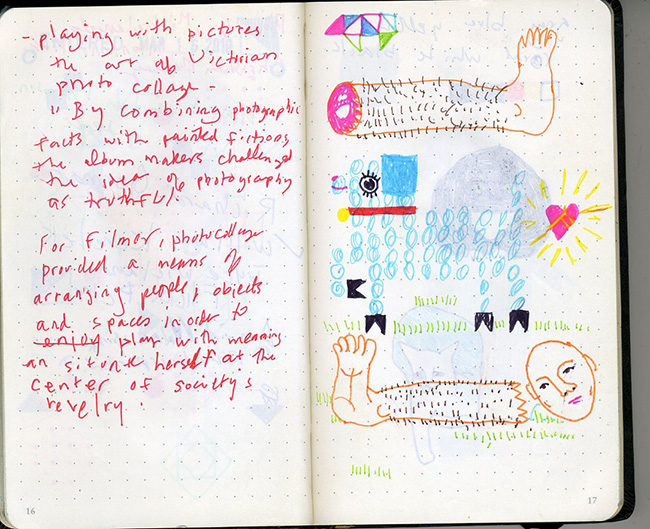 - playing with pictures
the art of Victorian
photo collage -
" By combining photographic
facts with painted fictions
the album makers challenged
the idea of photography
as truthful.
For Filmer, photocollage
provided a means of
arranging people, objects
and spaces in order to
enjoy play with meaning
an situate herself at the
center of society's
revelry.
16
17